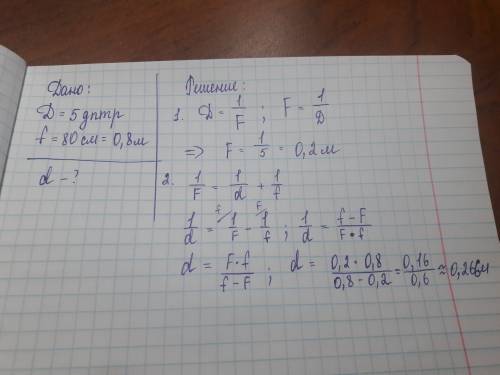 Дано:
D = 5 дптр
f = 80 см = 0,8 м
d - ?
Решение:
1. D = 1/F ; F = 1/D
=> F = 1/5 = 0,2 м
2. 1/F = 1/d + 1/f
1/d = 1/F - 1/f ; 1/d = (f - F)/(F • f)
d = (F • f)/(f - F) ; d = (0,2 • 0,8)/(0,8 - 0,2) = 0,16/0,6 ≈ 0,266м